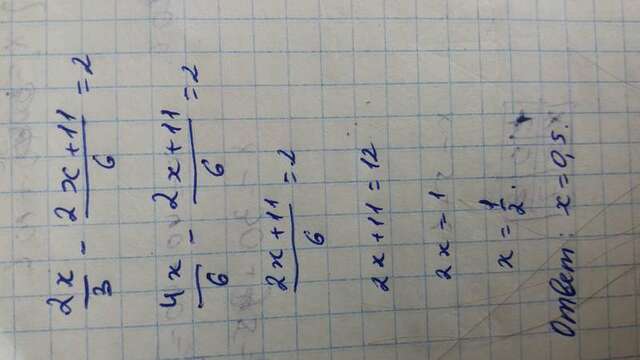 2x/3 - 2x+11/6 = 2
4x/6 - 2x+11/6 = 2
2x+11/6 = 2
2x+11=12
2x=1
x=1/2.
Ответ: x=0,5.